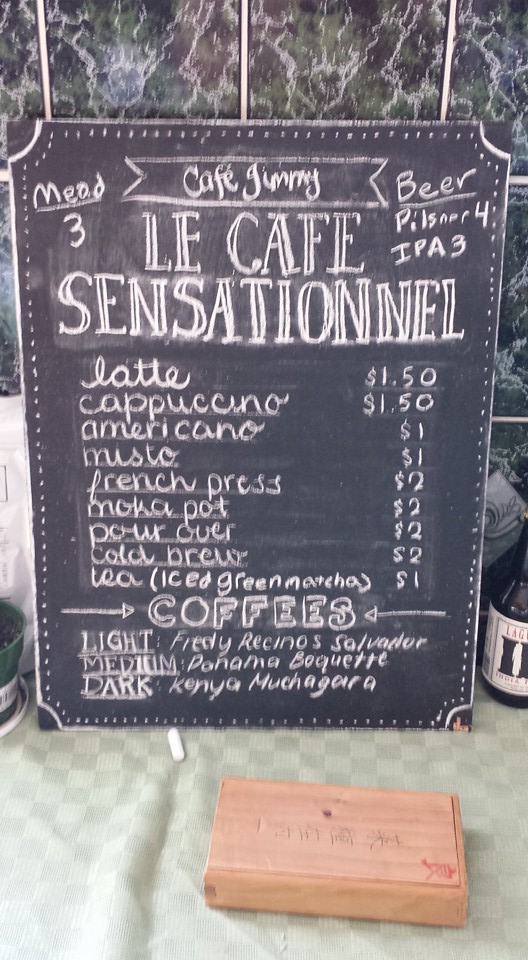 Café Jimmy
Mead
3
Beer
Pilsner 4
IPA 3
LE CAFE
SENSATIONNEL
latte $1.50
cappuccino $1.50
americano $1
misto $1
french press $2
moka pot $2
pour over $2
cold brew $2
tea (iced green matcha) $1
COFFEES
LIGHT: Fredy Recinos Salvador
MEDIUM: Panama Boquette
DARK: Kenya Muchagara
LAG